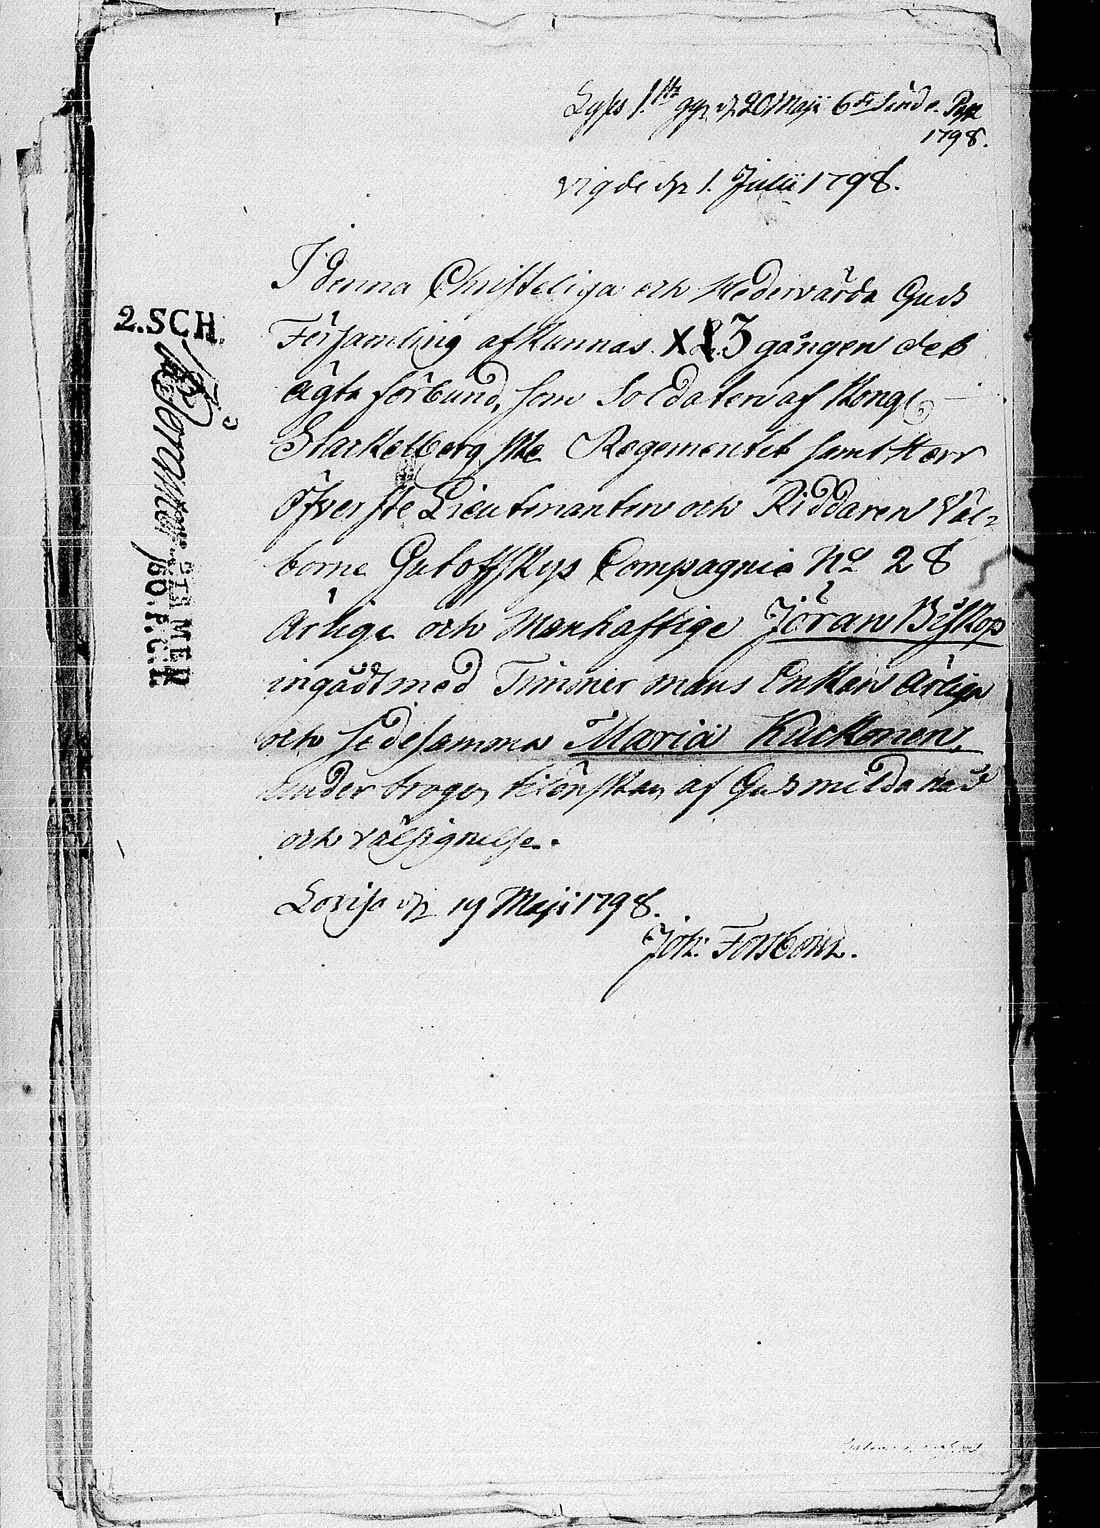 Lyses 1sta gg. d. 20 Maji
1798.
vigde d. 1. Julii 1798.
I denna Christeliga och Hedervärda Guds
Församling afkunnas X 2. 3 gången det
ägta förbund, som Soldaten af Kongl
Stackelbergske Regementet samt Herr
Öfverste Lieutenanten och Riddaren Väl-
borne Gutoffskys Compagnie No 28
Ärlige och Manhaftige Jöran Biskop
ingådt med Timmer mans Enkan Ärliga
och sedesamma Maria Kuckonen,
under trogen tillönskan af Guds milda nåd
och välsignelse.
Lovisa d. 19 Maji 1798.
Joh: Forsbom.
2.SCH.
STÄMPEL